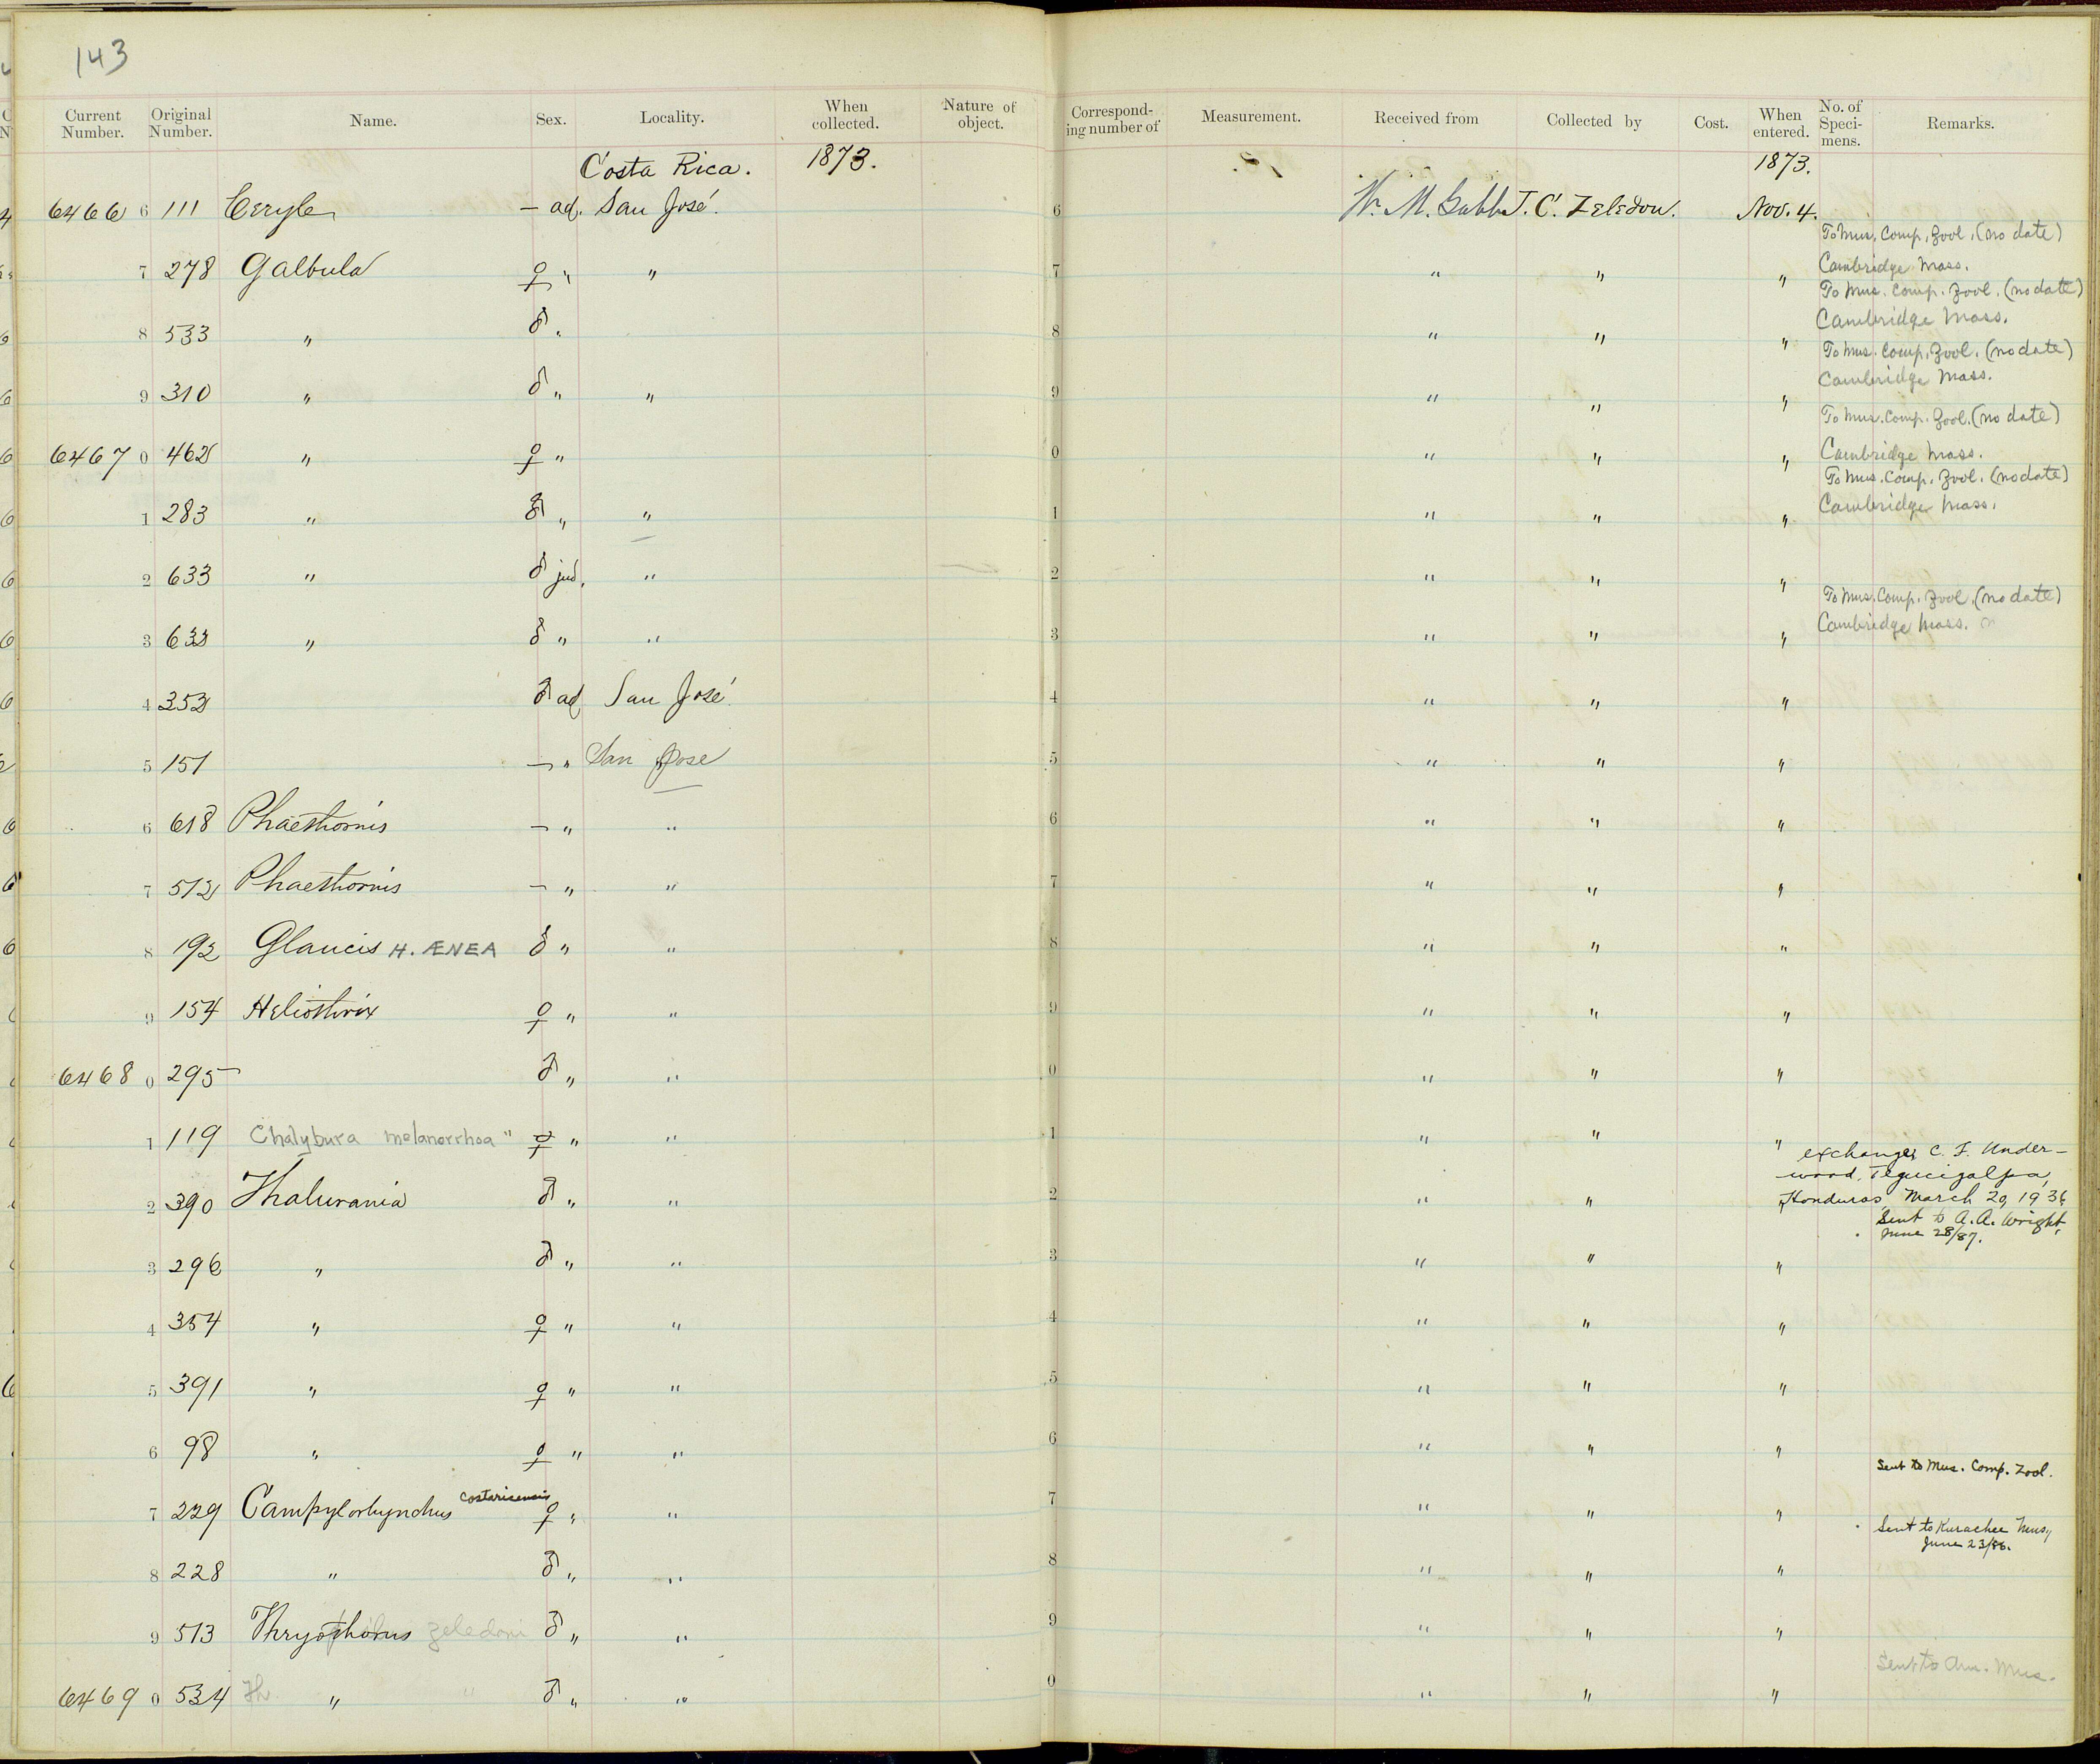 143
Current Number. Original Number. Name. Sex. Locality. When collected. Nature of object. Corresponding number of Measurement. Received from Collected by Cost. When entered. No. of Specimens. Remarks.
Costa Rica. 1873. 1873.
6466 6 111 Ceryle — ad. San José. 6 Wm. M. Gabb J. C. Zeledon. Nov. 4.
To Mus. Comp. Zool. (no date)
Cambridge Mass.
7 278 Galbula ♀ " " 7 " " "
To Mus. Comp. Zool. (no date)
Cambridge Mass.
8 533 " ♂ " 8 " " "
To Mus. Comp. Zool. (no date)
Cambridge Mass.
9 310 " ♂ " " 9 " " "
To Mus. Comp. Zool. (no date)
Cambridge Mass.
6467 0 462 " ♀ " 0 " " "
To Mus. Comp. Zool. (no date)
Cambridge Mass.
1 283 " ♂ " " 1 " " "
2 633 " ♂ jud. " 2 " " "
To Mus. Comp. Zool. (no date)
Cambridge Mass.
3 633 " ♂ " " 3 " " "
4 353 ♂ ad San José. 4 " " "
5 151 — " San Jose 5 " " "
6 618 Phaethornis — " " 6 " " "
7 512 Phaethornis — " " 7 " " "
8 192 Glaucis H. ÆNEA ♂ " " 8 " " "
9 154 Heliothrix ♀ " " 9 " " "
6468 0 295 ♂ " " 0 " " "
1 119 Chalybura melanorrhoa " ♀ " " 1 " " "
exchange, C. F. Under-
wood, Tegucigalpa,
Honduras, March 20, 1936
2 390 Thalurania ♂ " " 2 " "
Sent to A. A. Wright,
June 28/87.
3 296 " ♂ " " 3 " " "
4 354 " ♀ " " 4 " " "
5 391 " ♀ " " 5 " " "
6 98 " ♀ " " 6 " " "
Sent to Mus. Comp. Zool.
7 229 Campylorhynchus costaricensis ♀ " " 7 " " "
Sent to Kurachee Mus,
June 23/86.
8 228 " ♂ " " 8 " " "
9 513 Thryothorus zeledoni ♂ " " 9 " " "
Sent to Am. Mus.
6469 0 534 Th " " ♂ " " 0 " " "